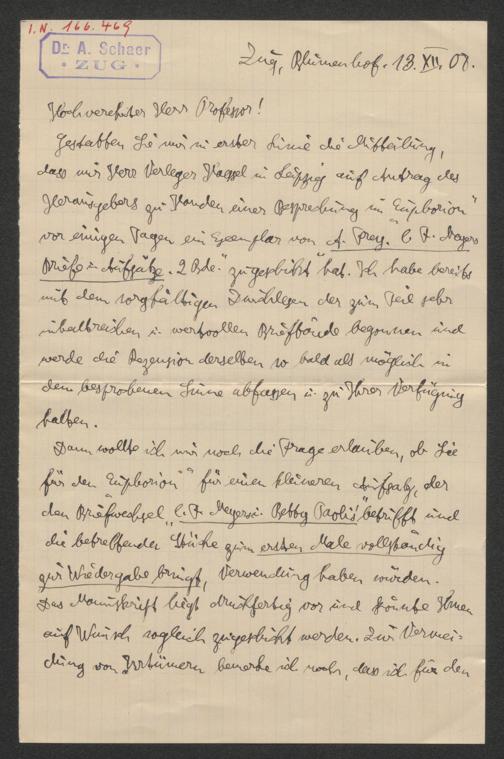 I.N. 166.469
Dr A. Schaer
• ZUG •
Zug, Blumenhof. 13. XII. 07.
Hochverehrter Herr Professor!
Gestatten Sie mir in erster Linie die Mitteilung,
dass mir Herr Verleger Haessel in Leipzig auf Antrag des
Herausgebers zu Handen einer Besprechung im "Euphorion"
vor einigen Tagen ein Exemplar von A. Frey. "C. F. Meyers
Briefe u. Aufsätze. 2 Bde." zugeschickt hat. Ich habe bereits
mit dem sorgfältigen Durchlesen der zum Teil sehr
inhaltreichen u. wertvollen Briefbände begonnen und
werde die Rezension derselben so bald als möglich in
dem besprochenen Sinne abfassen u. zu Ihrer Verfügung
halten.
Dann wollte ich mir noch die Frage erlauben, ob Sie
für den "Euphorion" für einen kleineren Aufsatz, der
den Briefwechsel "C. F. Meyers u. Betty Paolis" betrifft und
die betreffenden Stücke zum ersten Male vollständig
zur Wiedergabe bringt, Verwendung haben würden.
Das Manuskript liegt druckfertig vor und könnte Ihnen
auf Wunsch sogleich zugeschickt werden. Zur Vermei-
dung von Irrtümern bemerke ich noch, dass ich für den